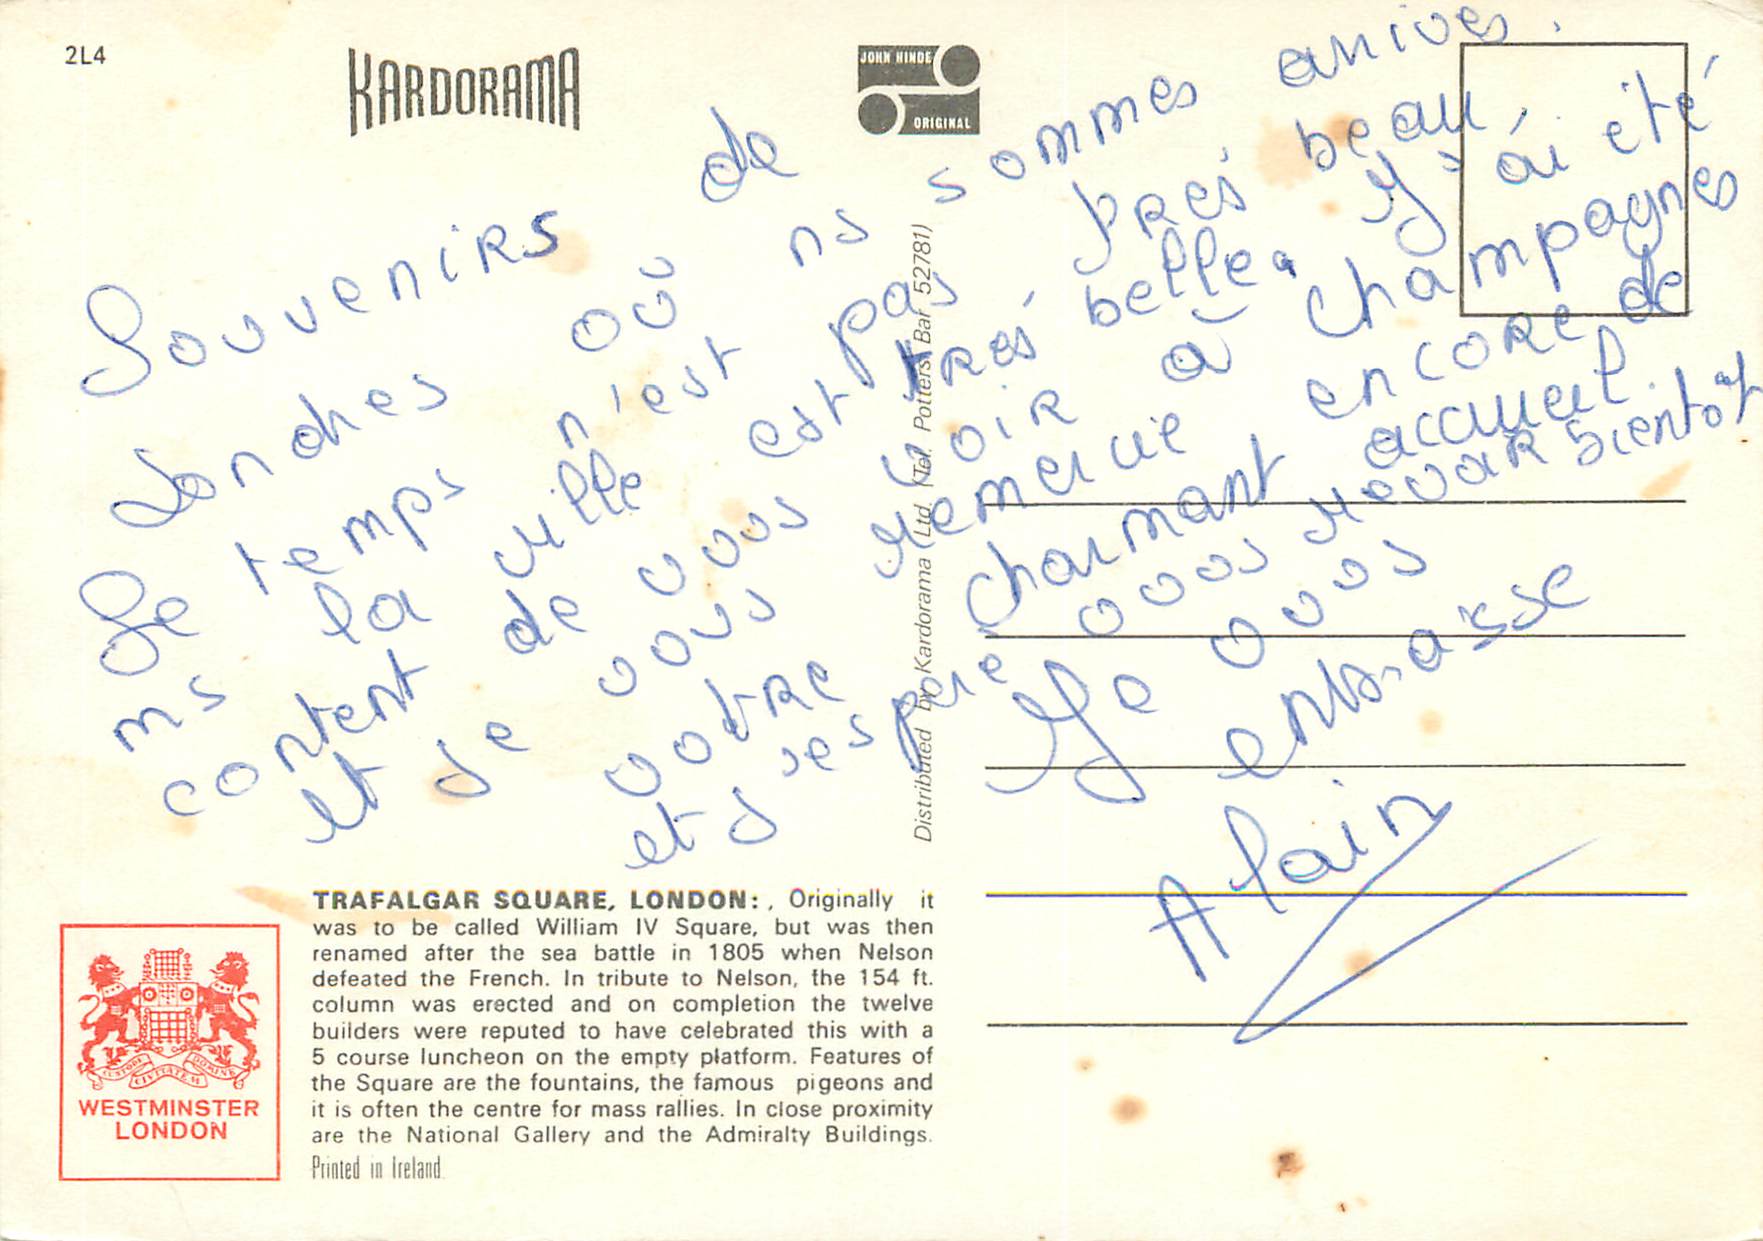 2L4
KARDORAMA
JOHN HINDE
ORIGINAL
Souvenirs de
Londres où ns sommes arrivés.
Le temps n'est pas très beau,
ms la ville est très belle. J'ai été
content de vous voir à Champagnes
et je vous remercie encore de
votre charmant accueil
et j'espère vous revoir bientôt
Je vous
embrasse
Alain
Distributed by Kardorama Ltd. (Tel. Potters Bar 52781)
TRAFALGAR SQUARE, LONDON: , Originally it
was to be called William IV Square, but was then
renamed after the sea battle in 1805 when Nelson
defeated the French. In tribute to Nelson, the 154 ft.
column was erected and on completion the twelve
builders were reputed to have celebrated this with a
5 course luncheon on the empty platform. Features of
the Square are the fountains, the famous pigeons and
it is often the centre for mass rallies. In close proximity
are the National Gallery and the Admiralty Buildings.
Printed in Ireland
CUSTODI CIVITATEM DOMINE
WESTMINSTER
LONDON